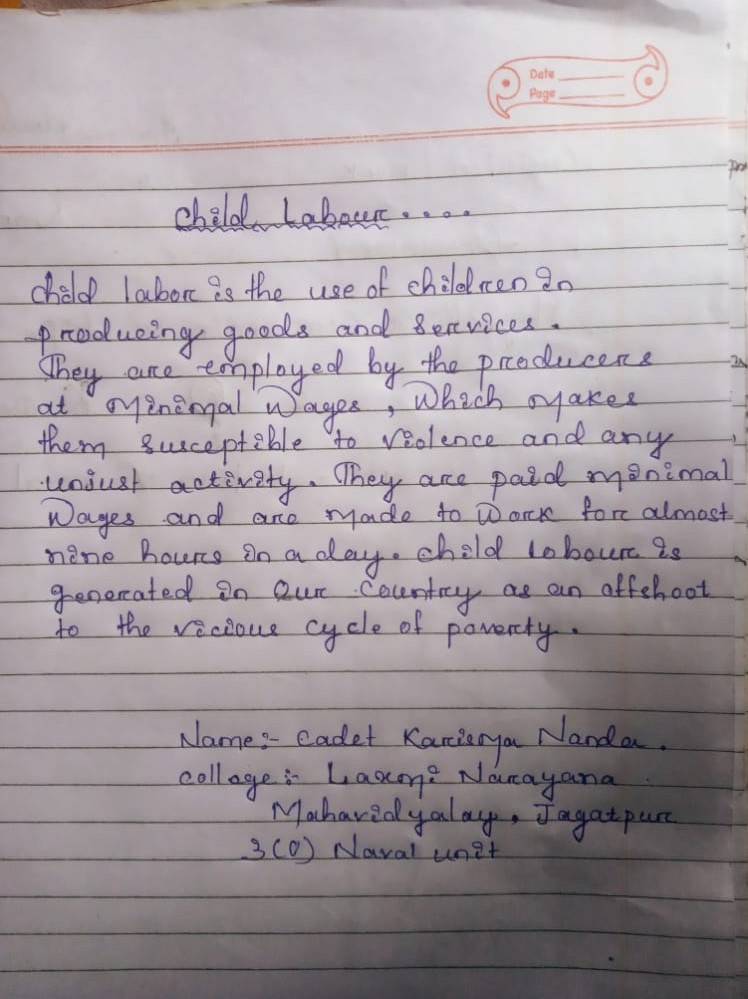 Date
Page
Child Labour....
child labor is the use of children in
producing goods and services.
They are employed by the producers
at minimal wages, which makes
them susceptible to violence and any
unjust activity. They are paid minimal
wages and are made to work for almost
nine hours in a day. child labour is
generated in our country as an offshoot
to the vicious cycle of poverty.
Name:- Cadet Karisma Nanda.
collage:- Laxmi Narayana
Mahavidyalay, Jagatpur
3(O) Naval unit